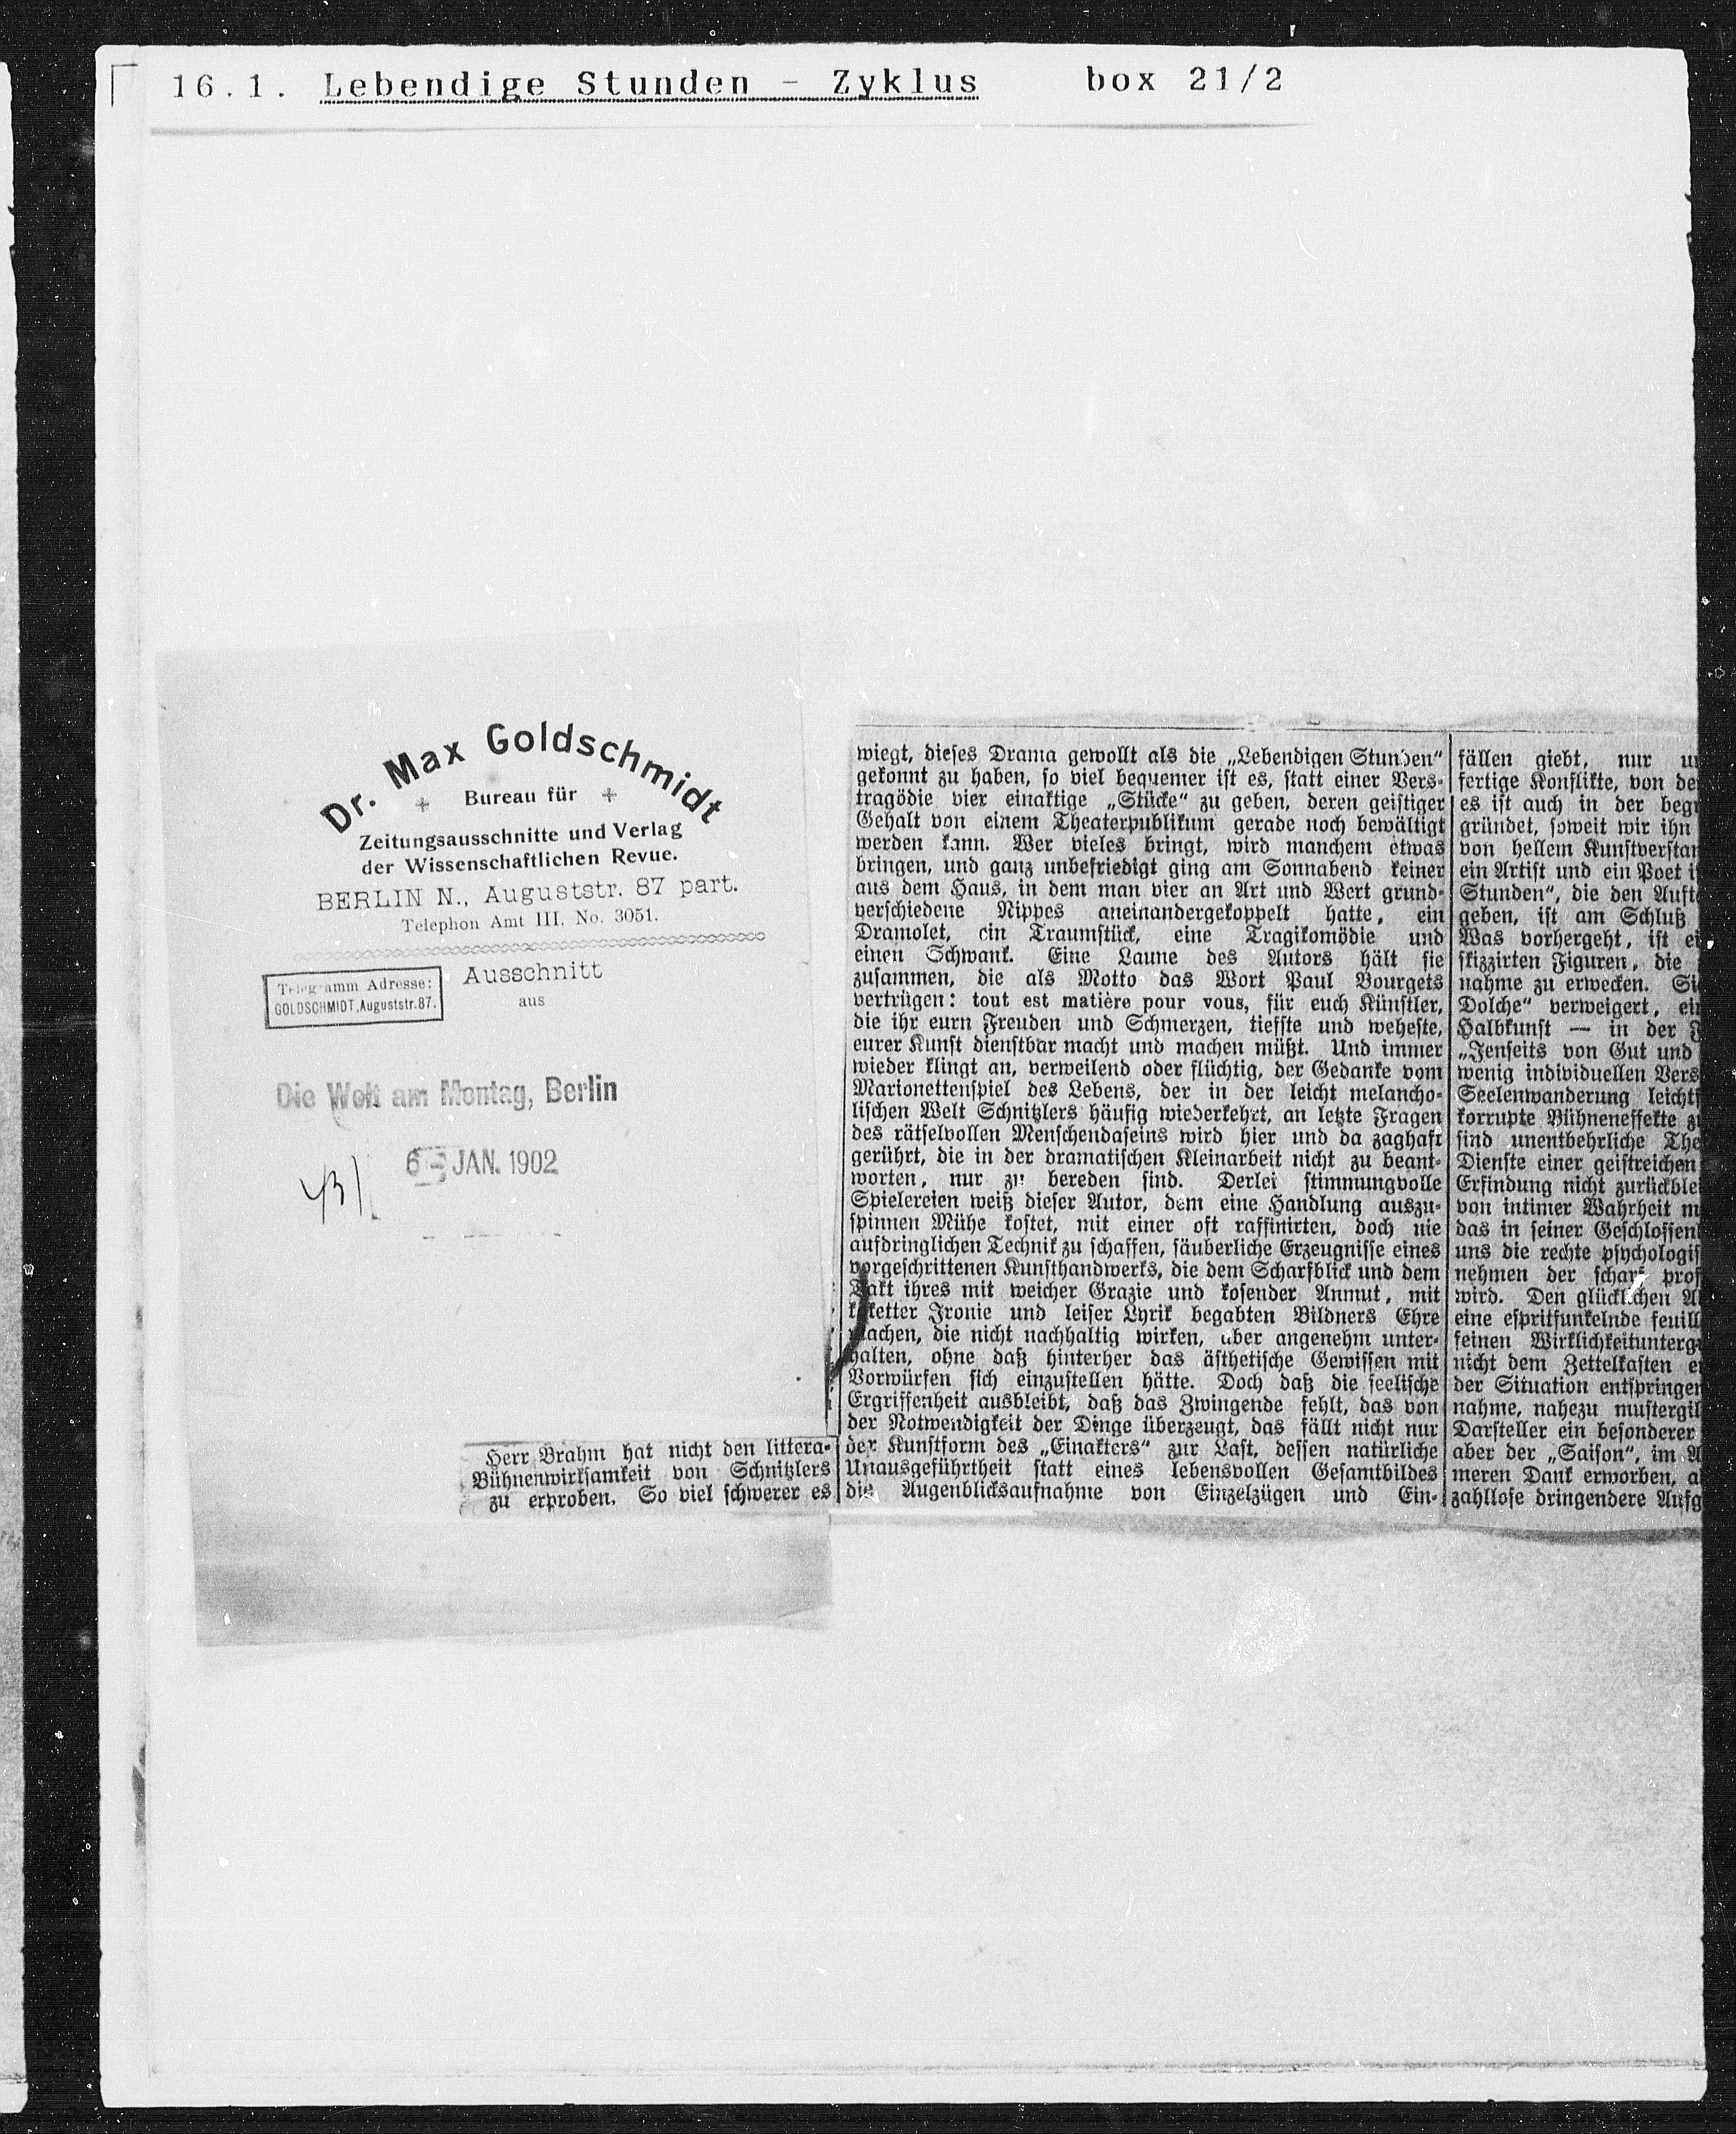 16.1. Lebendige Stunden - Zyklus box 21/2
Dr. Max Goldschmidt
Bureau für
Zeitungsausschnitte und Verlag
der Wissenschaftlichen Revue.
BERLIN N., Auguststr. 87 part.
Telephon Amt III. No. 3051.
Telegramm Adresse:
GOLDSCHMIDT, Auguststr. 87.
Ausschnitt
aus
Die Welt am Montag, Berlin
6 JAN. 1902
Herr Brahm hat nicht den littera-
Bühnenwirksamkeit von Schnitzlers
zu erproben. So viel schwerer es
wiegt, dieses Drama gewollt als die „Lebendigen Stunden“
gekonnt zu haben, so viel bequemer ist es, statt einer Vers-
tragödie vier einaktige „Stücke“ zu geben, deren geistiger
Gehalt von einem Theaterpublikum gerade noch bewältigt
werden kann. Wer vieles bringt, wird manchem etwas
bringen, und ganz unbefriedigt ging am Sonnabend keiner
aus dem Haus, in dem man vier an Art und Wert grund-
verschiedene Nippes aneinandergekoppelt hatte, ein
Dramolet, ein Traumstück, eine Tragikomödie und
einen Schwank. Eine Laune des Autors hält sie
zusammen, die als Motto das Wort Paul Bourgets
vertrügen: tout est matière pour vous, für euch Künstler,
die ihr eurn Freuden und Schmerzen, tiefste und weheste,
eurer Kunst dienstbar macht und machen müßt. Und immer
wieder klingt an, verweilend oder flüchtig, der Gedanke vom
Marionettenspiel des Lebens, der in der leicht melancho-
lischen Welt Schnitzlers häufig wiederkehrt, an letzte Fragen
des rätselvollen Menschendaseins wird hier und da zaghaft
gerührt, die in der dramatischen Kleinarbeit nicht zu beant-
worten, nur zu bereden sind. Derlei stimmungvolle
Spielereien weiß dieser Autor, dem eine Handlung auszu-
spinnen Mühe kostet, mit einer oft raffinirten, doch nie
aufdringlichen Technik zu schaffen, säuberliche Erzeugnisse eines
vorgeschrittenen Kunsthandwerks, die dem Scharfblick und dem
Takt ihres mit weicher Grazie und kosender Anmut, mit
koketter Ironie und leiser Lyrik begabten Bildners Ehre
machen, die nicht nachhaltig wirken, aber angenehm unter-
halten, ohne daß hinterher das ästhetische Gewissen mit
Vorwürfen sich einzustellen hätte. Doch daß die seelische
Ergriffenheit ausbleibt, daß das Zwingende fehlt, das von
der Notwendigkeit der Dinge überzeugt, das fällt nicht nur
der Kunstform des „Einakters“ zur Last, dessen natürliche
Unausgeführtheit statt eines lebensvollen Gesamtbildes
die Augenblicksaufnahme von Einzelzügen und Ein-
fällen giebt, nur
fertige Konflikte, von de
es ist auch in der beg
gründet, soweit wir ihn
von hellem Kunstverstan
ein Artist und ein Poet i
Stunden“, die den Aufta
geben, ist am Schluß
Was vorhergeht, ist ei
skizzirten Figuren, die
nahme zu erwecken. Si
Dolche“ verweigert, ein
Halbkunst — in der
„Jenseits von Gut und
wenig individuellen Vers
Seelenwanderung leichtf
korrupte Bühneneffekte z
sind unentbehrliche The
Dienste einer geistreichen
Erfindung nicht zurückble
von intimer Wahrheit m
das in seiner Geschlossen
uns die rechte psychologis
nehmen der scharf prof
wird. Den glücklichen A
eine espritfunkelnde feuill
feinen Wirklichkeitunterg
nicht dem Zettelkasten e
der Situation entspringen
nahme, nahezu mustergil
Darsteller ein besonderer
aber der „Saison“, im A
meren Dank erworben, a
zahllose dringendere Aufg